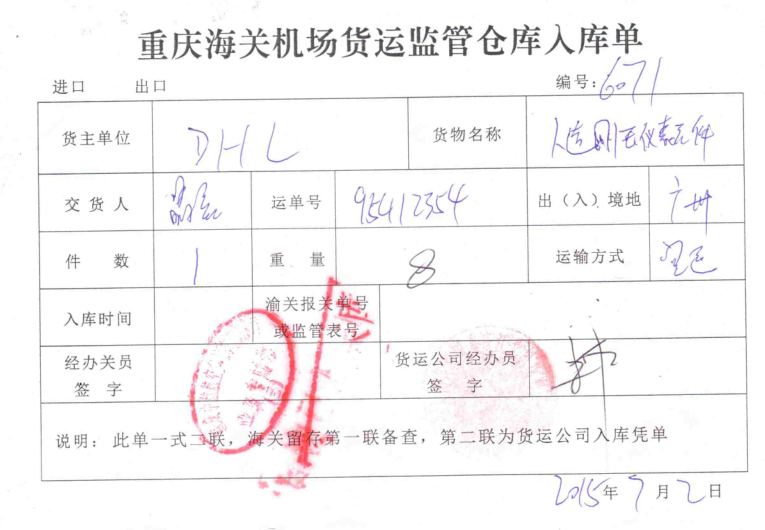 重庆海关机场货运监管仓库入库单
进口 出口 编号:6071
货主单位 DHL 货物名称
交货人 运单号 95412354 出(入)境地 广州
件数 1 重量 8 运输方式
入库时间 渝关报关单号
或监管表号
经办关员 货运公司经办员
签字 签字
说明:此单一式二联,海关留存第一联备查,第二联为货运公司入库凭单
2015年7月2日